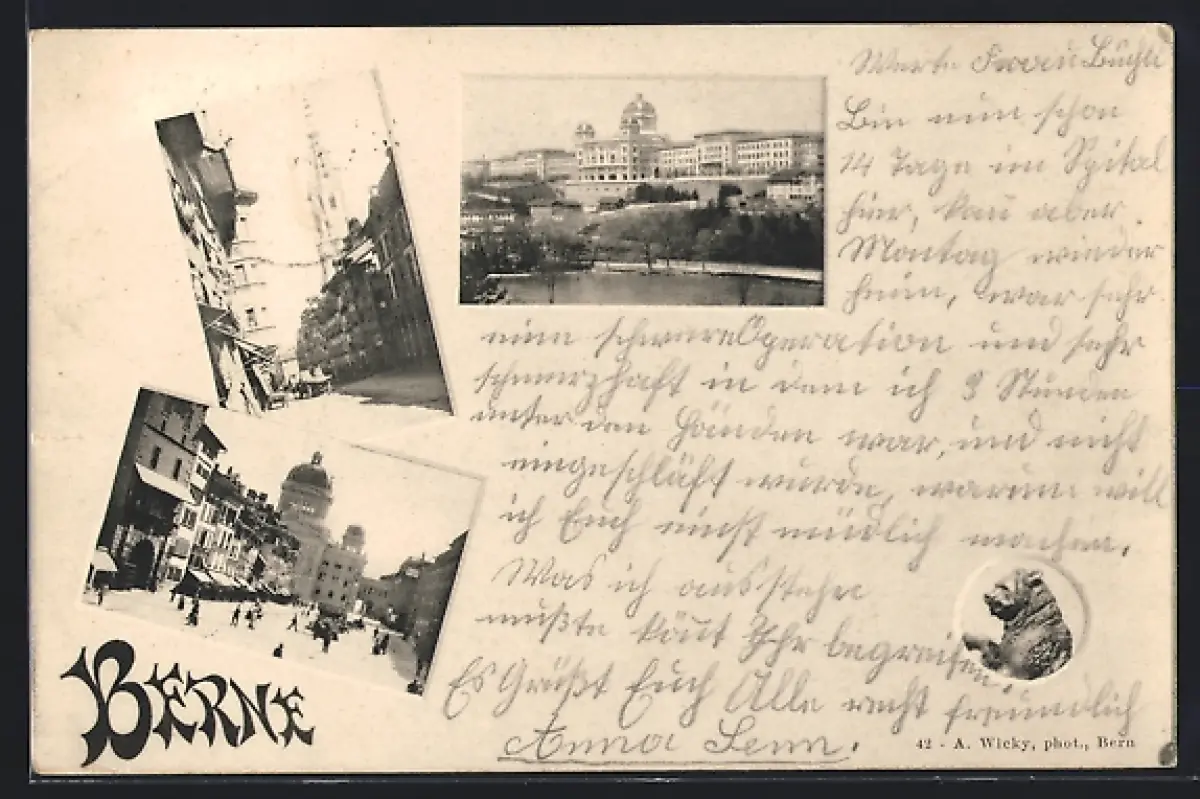 Werte Frau Büchli
Bin nun schon
14 Tage im Spital
hier, kan aber
Montag wieder
heim, war sehr
eine schwere Operation und sehr
schmerzhaft in dem ich 3 Stunden
unter den Händen war, und nicht
eingeschläft wurde, warum will
ich Euch nicht machen.
Was ich ausstehe
mußte könt Ihr begreifen.
Es Grüßt Euch Alle recht freundlich
Anna Senn.
BERNE
42 - A. Wicky, phot., Bern